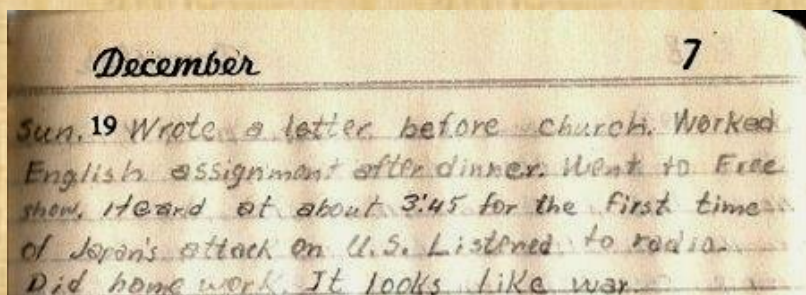 December 7
Sun. 19 Wrote a letter before church. Worked
English assignment after dinner. Went to Free
show. Heard at about 3:45 for the first time
of Japan's attack on U.S. Listened to radio.
Did home work. It looks like war